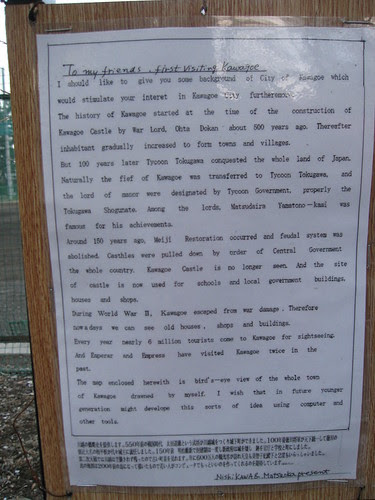 To my friends, first visiting Kawagoe
I should like to give you some background of City of Kawagoe which
would stimulate your interet in Kawagoe City furthermore.
The history of Kawagoe started at the time of the construction of
Kawagoe Castle by War Lord, Ohta Dokan about 500 years ago. Thereafter
inhabitant gradually increased to form towns and villages.
But 100 years later Tycoon Tokugawa conquested the whole land of Japan.
Naturally the fief of Kawagoe was transferred to Tycoon Tokugawa, and
the lord of manor were designated by Tycoon Government, properly the
Tokugawa Shogunate. Among the lords, Matsudaira Yamatono-kami was
famous for his achievements.
Around 150 years ago, Meiji Restoration occurred and feudal system was
abolished. Casthles were pulled down by order of Central Government
the whole country. Kawagoe Castle is no longer seen. And the site
of castle is now used for schools and local government buildings,
houses and shops.
During World War II, Kawagoe escaped from war damage. Therefore
nowadays we can see old houses, shops and buildings.
Every year nearly 6 million tourists come to Kawagoe for sightseeing.
And Emperor and Empress have visited Kawagoe twice in the
past.
The map enclosed herewith is bird's-eye view of the whole town
of Kawagoe drawned by myself. I wish that in future younger
generation might develope this sorts of idea using computer and
other tools.
present